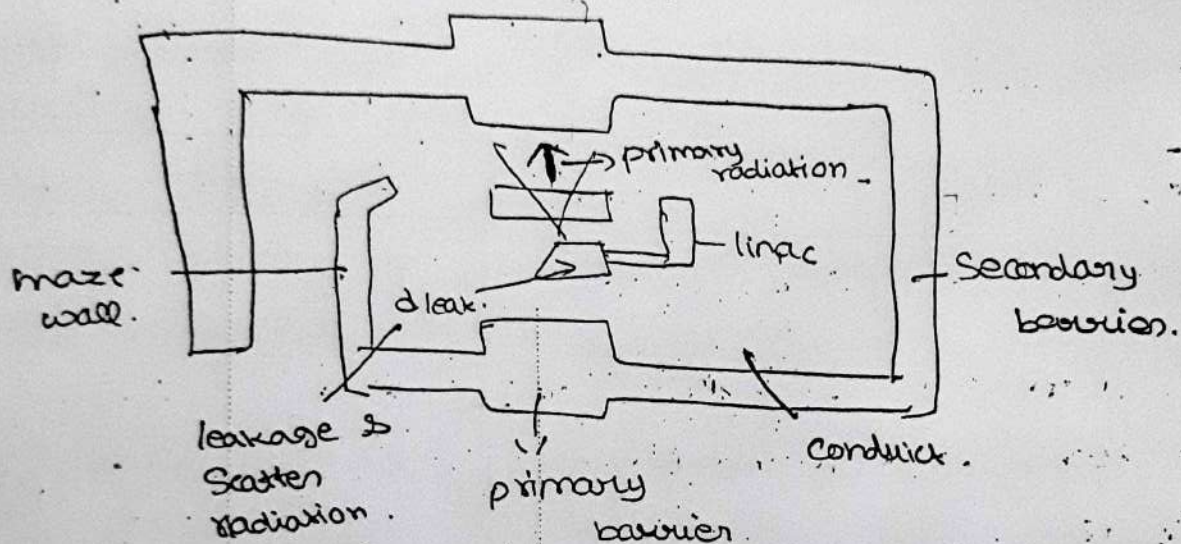 primary
radiation
linac
maze
wall.
d leak.
Secondary
barrier.
leakage &
Scatter
radiation.
primary
barrier.
conduict.